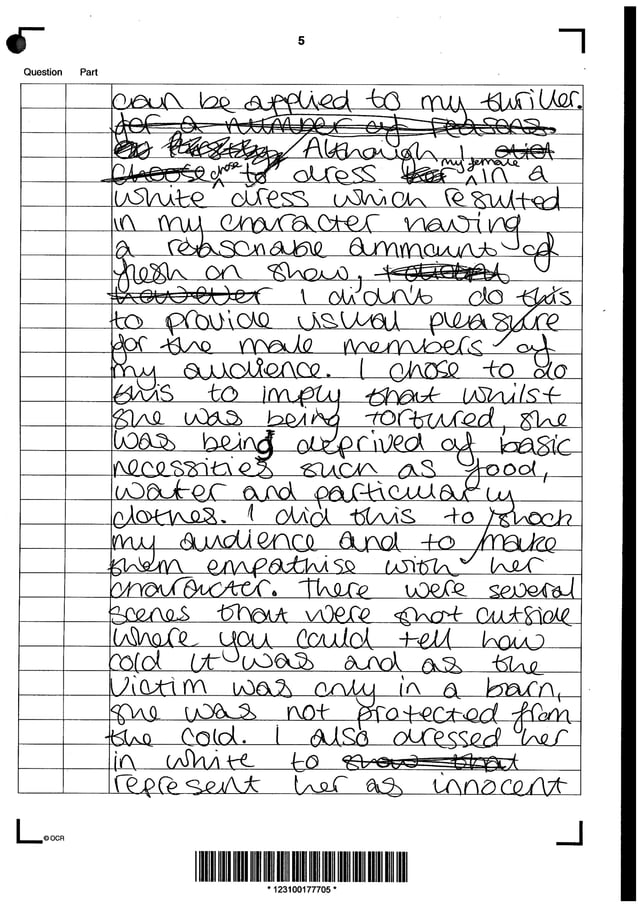 5
Question Part
can be applied to my thriller.
for a number of reasons.
Although I
choose chose to dress my female in a
white dress which resulted
in my character having
a reasonable ammount of
flesh on show,
however I didn't do this
to provide visual pleasure
for the male members of
my audience. I chose to do
this to imply that whilst
she was being tortured, she
was being deprived of basic
necessities such as food,
water and particularly
clothes. I did this to shock
my audience and to make
them empathise with her
character. There were several
scenes that were shot outside
where you could tell how
cold it was and as the
victim was only in a barn,
she was not protected from
the cold. I also dressed her
in white to show that
represent her as innocent
© OCR
* 123100177705 *